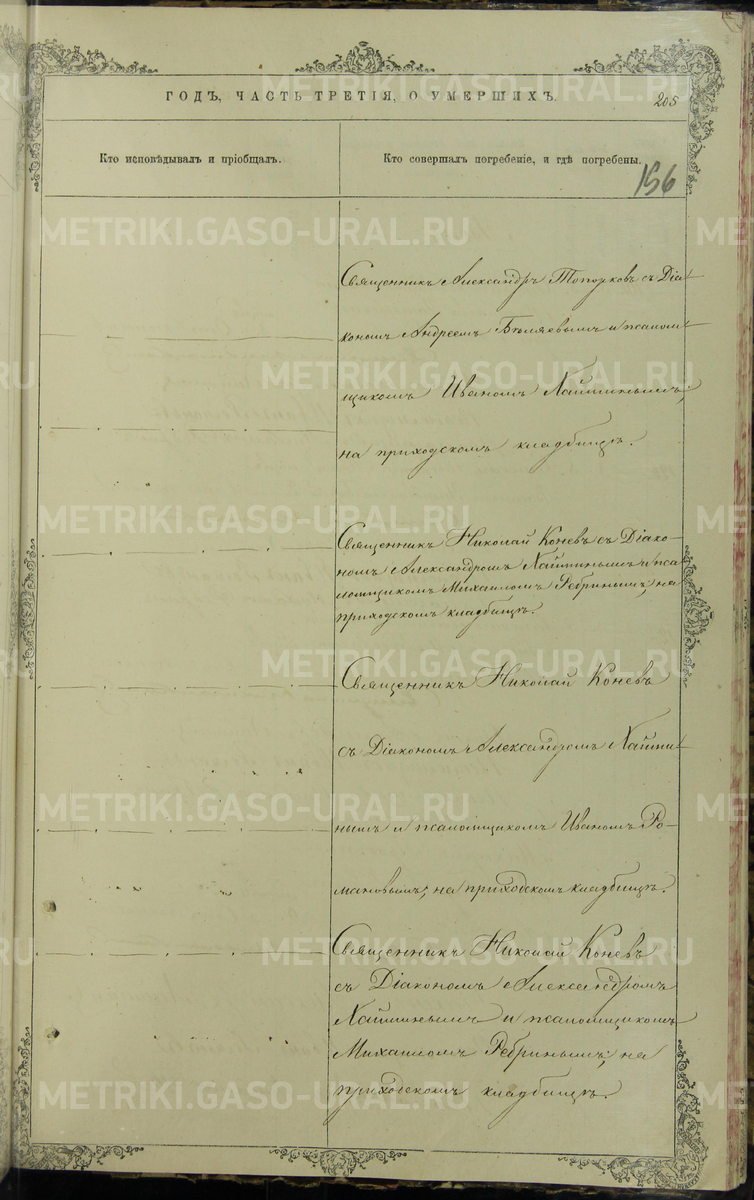 ГОДЪ, ЧАСТЬ ТРЕТІЯ, О УМЕРШИХЪ.
205
Кто исповѣдывалъ и пріобщалъ.
Кто совершалъ погребеніе, и гдѣ погребены.
156
METRIKI.GASO-URAL.RU
Священникъ Александръ Топорковъ съ Діа-
кономъ Андреемъ Бѣляевымъ и псалом-
щикомъ Иваномъ
на приходскомъ кладбищѣ.
Священникъ Николай Коневъ съ Діако-
номъ Александромъ и пса-
ломщикомъ Михаиломъ Ребринымъ, на
приходскомъ кладбищѣ.
Священникъ Николай Коневъ
съ Діакономъ Александромъ
нымъ и псаломщикомъ Иваномъ Ро-
мановымъ, на приходскомъ кладбищѣ.
Священникъ Николай Коневъ
съ Діакономъ Александромъ
и псаломщикомъ
Михаиломъ Ребринымъ, на
приходскомъ кладбищѣ.